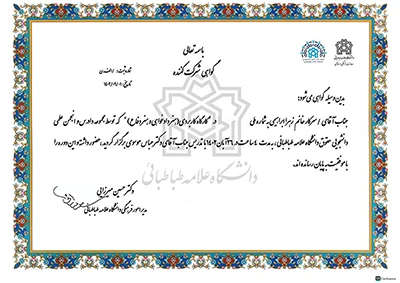 باسمه تعالی
گواهی شرکت کننده
بدین وسیله گواهی می شود:
جناب آقای / سرکار خانم زهرا ابراهیمی به شماره ملی در کارگاه کاربردی (هنر دادخواهی و هنر دفاع) که توسط مجموعه دادمن و انجمن علمی
دانشجویی حقوق دانشگاه علامه طباطبائی، به مدت ۸ ساعت در ۲۶ آبان ۱۴۰۲ با تدریس جناب آقای دکتر عباس موسوی برگزار گردید، حضور داشته و این دوره را
با موفقیت به پایان رسانده اند.
دانشگاه علامه طباطبائی
دکتر حسین میرزائی
مدیر امور فرهنگی دانشگاه علامه طباطبائی